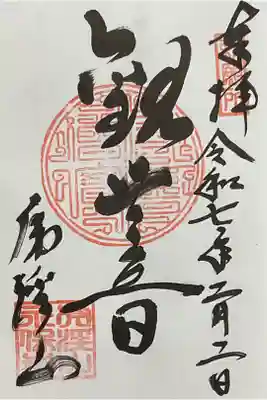 奉拝 令和七年二月二日
観世音
虎渓山